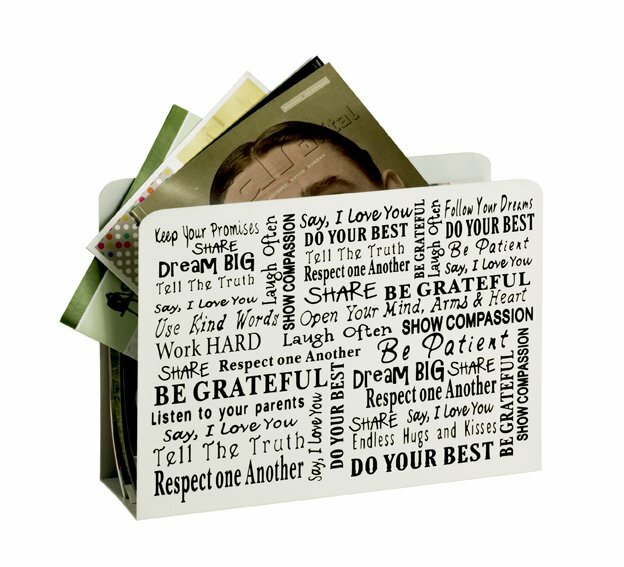 Keep Your Promises
SHARE
Dream BIG
Tell The Truth
Say, I Love You
Use Kind Words
Work HARD
SHARE
Laugh Often
SHOW COMPASSION
Say, I Love You
DO YOUR BEST
Tell The Truth
Respect one Another
SHARE
BE GRATEFUL
Laugh Often
Follow Your Dreams
DO YOUR BEST
Be Patient
Say, I Love You
BE GRATEFUL
Open Your Mind, Arms & Heart
Laugh Often
SHOW COMPASSION
Respect one Another
Be Patient
BE GRATEFUL
Listen to your parents
Say, I Love You
Tell The Truth
Respect one Another
Say, I Love You
DO YOUR BEST
Dream BIG
SHARE
Respect one Another
SHARE
Say, I Love You
Endless Hugs and Kisses
DO YOUR BEST
BE GRATEFUL
SHOW COMPASSION